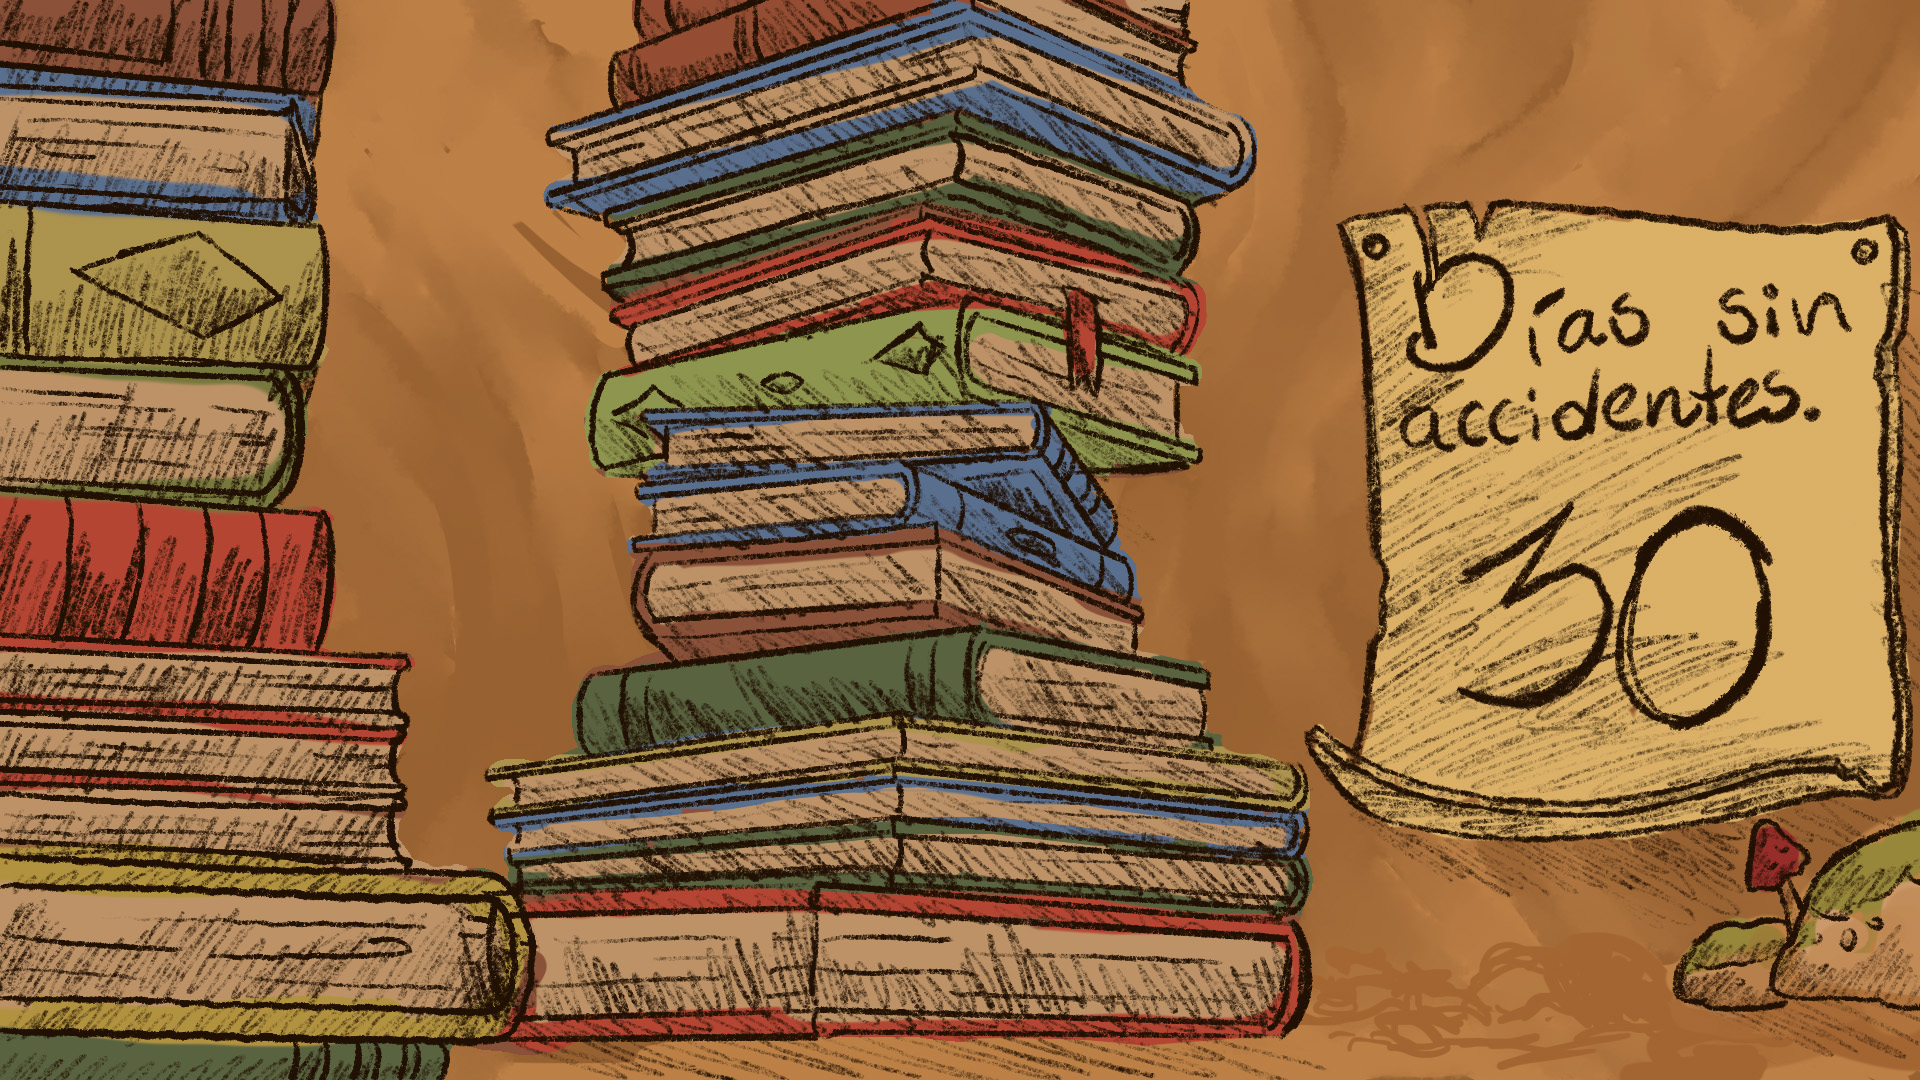 Días sin
accidentes.
30